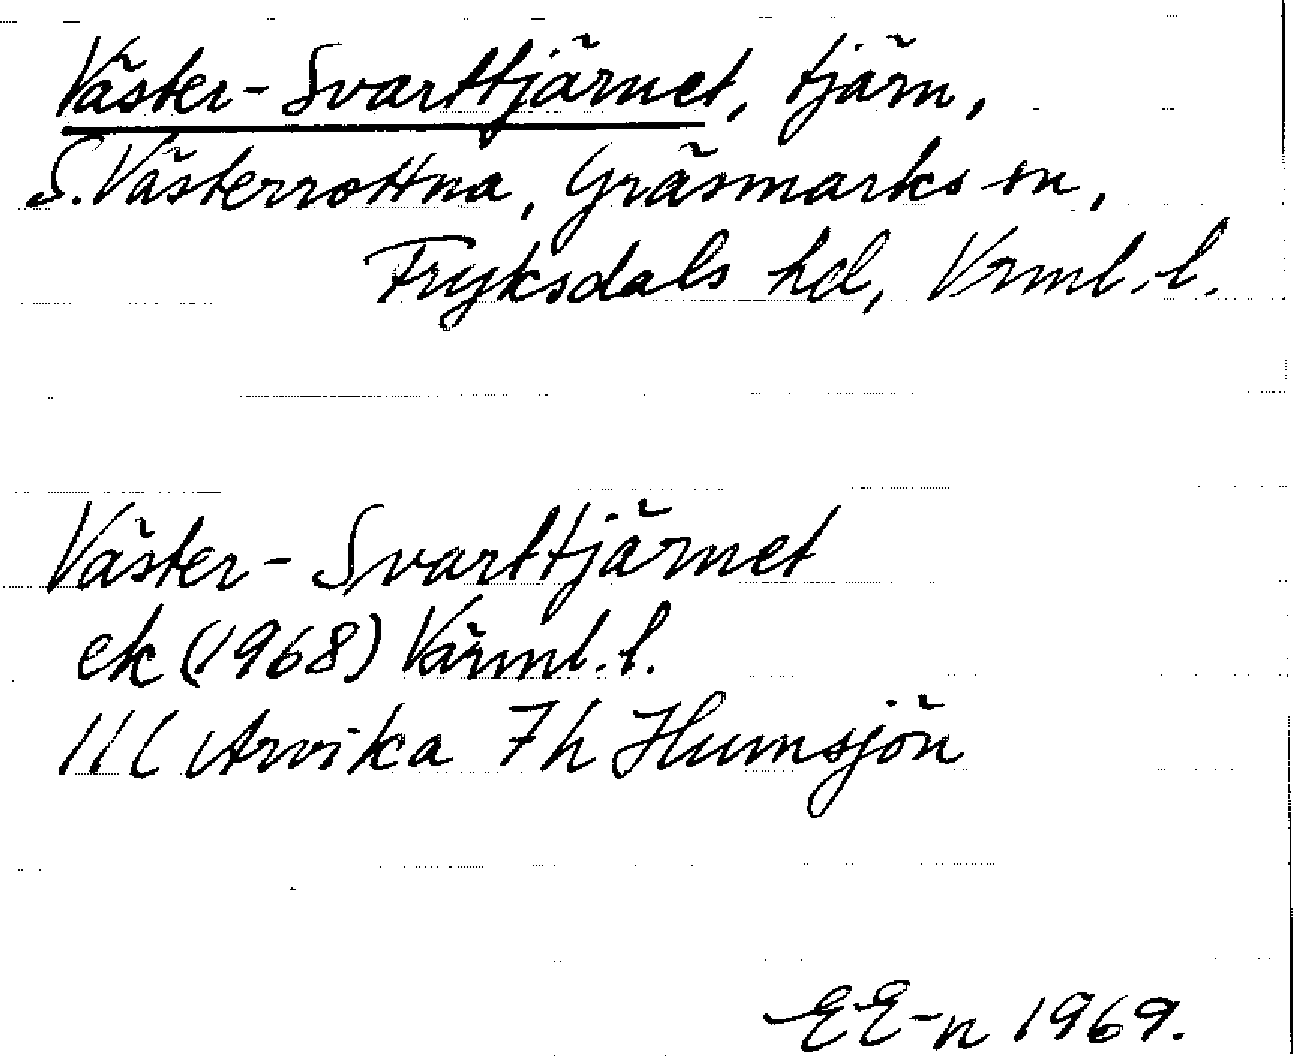 Väster-Svarttjärnet, tjärn,
S. Västerrottna, Gräsmarks sn,
Fryksdals hd, Vrml. l.
Väster-Svarttjärnet
ek (1968) Värml. l.
11C Arvika 7h Humsjön
EE-n 1969.